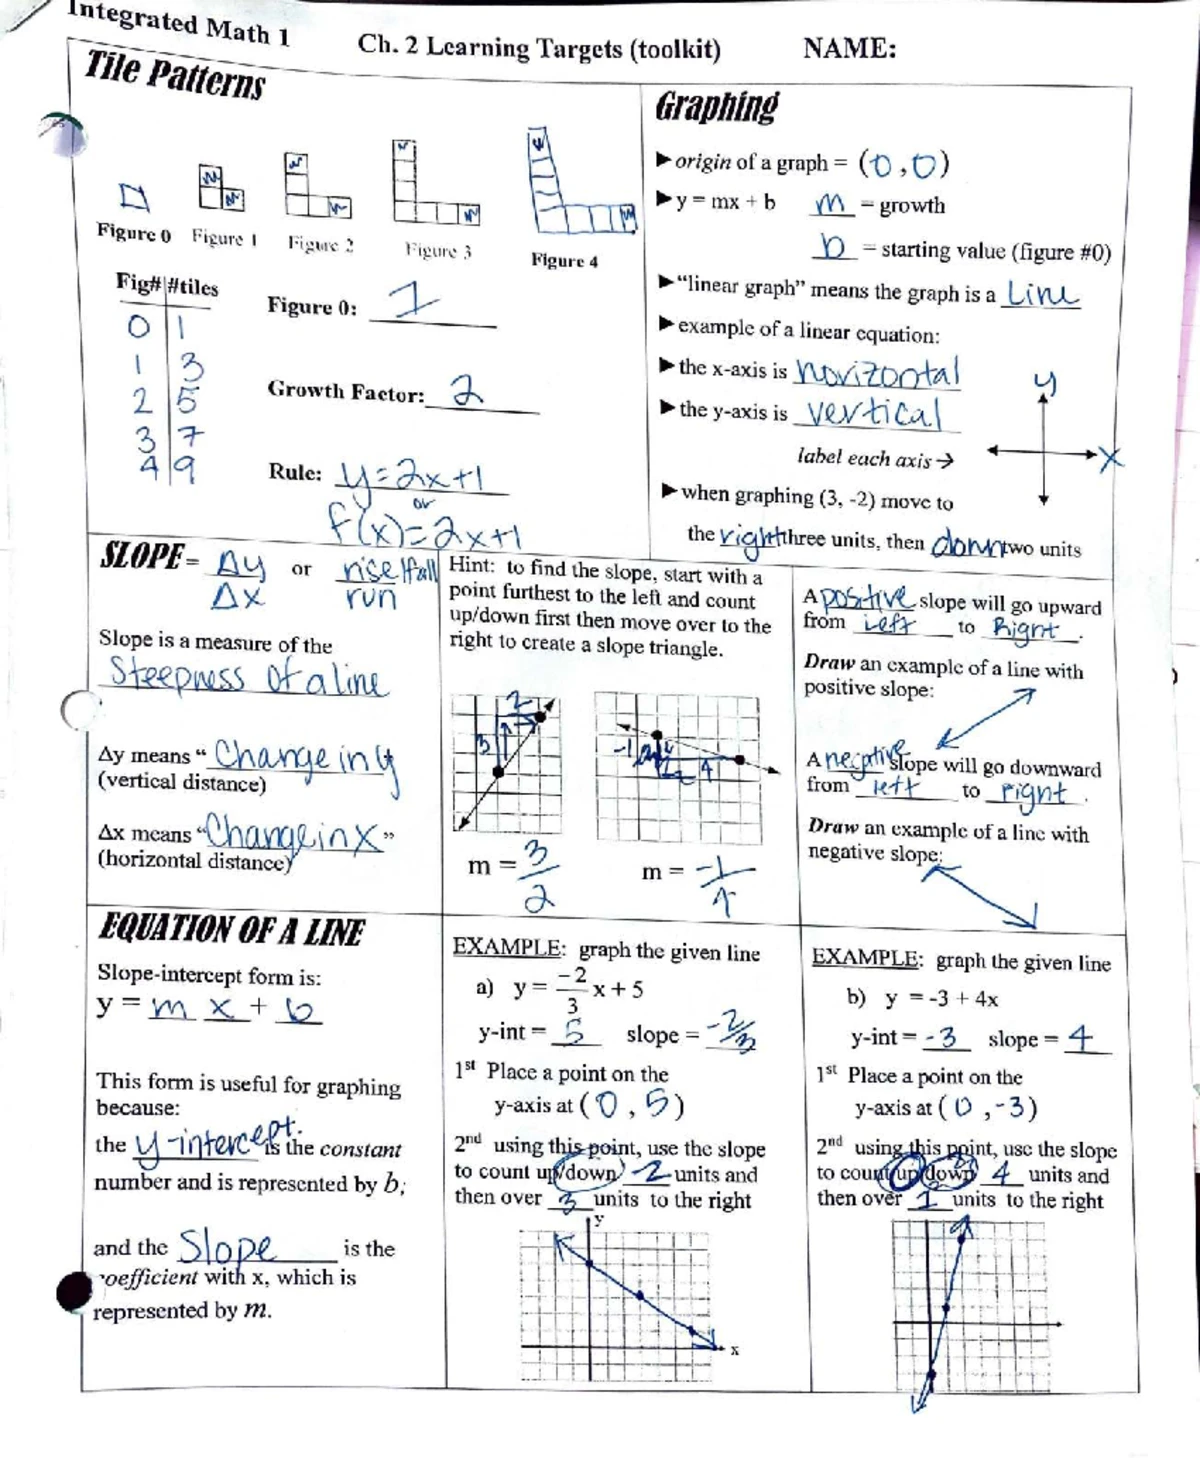 Integrated Math 1 Ch. 2 Learning Targets (toolkit) NAME:
Tile Patterns
Figure 0 Figure 1 Figure 2 Figure 3 Figure 4
Fig# #tiles
0 1
1 3
2 5
3 7
4 9
Figure 0: 1
Growth Factor: 2
Rule: y=2x+1
or
f(x)=2x+1
Graphing
►origin of a graph = (0,0)
►y = mx + b m = growth
b = starting value (figure #0)
►"linear graph" means the graph is a Line
►example of a linear equation:
►the x-axis is horizontal
►the y-axis is vertical
y
label each axis→
x
►when graphing (3, -2) move to
the right three units, then down two units
SLOPE = Δy or rise/fall
Δx run
Slope is a measure of the
Steepness Of a line
Δy means "Change in y
(vertical distance)
Δx means "Change in X"
(horizontal distance)
Hint: to find the slope, start with a
point furthest to the left and count
up/down first then move over to the
right to create a slope triangle.
2
3
-1
4
m = 3/2
m = -1/4
A positive slope will go upward
from Left to Right.
Draw an example of a line with
positive slope:
A negative slope will go downward
from left to right.
Draw an example of a line with
negative slope:
EQUATION OF A LINE
Slope-intercept form is:
y = m x + b
This form is useful for graphing
because:
the y-intercept. is the constant
number and is represented by b;
and the Slope is the
coefficient with x, which is
represented by m.
EXAMPLE: graph the given line
a) y = -2/3 x + 5
y-int = 5 slope = -2/3
1st Place a point on the
y-axis at (0, 5)
2nd using this point, use the slope
to count up/down -2 units and
then over 3 units to the right
y
x
EXAMPLE: graph the given line
b) y = -3 + 4x
y-int = -3 slope = 4
1st Place a point on the
y-axis at (0,-3)
2nd using this point, use the slope
to count up/down 4 units and
then over 1 units to the right